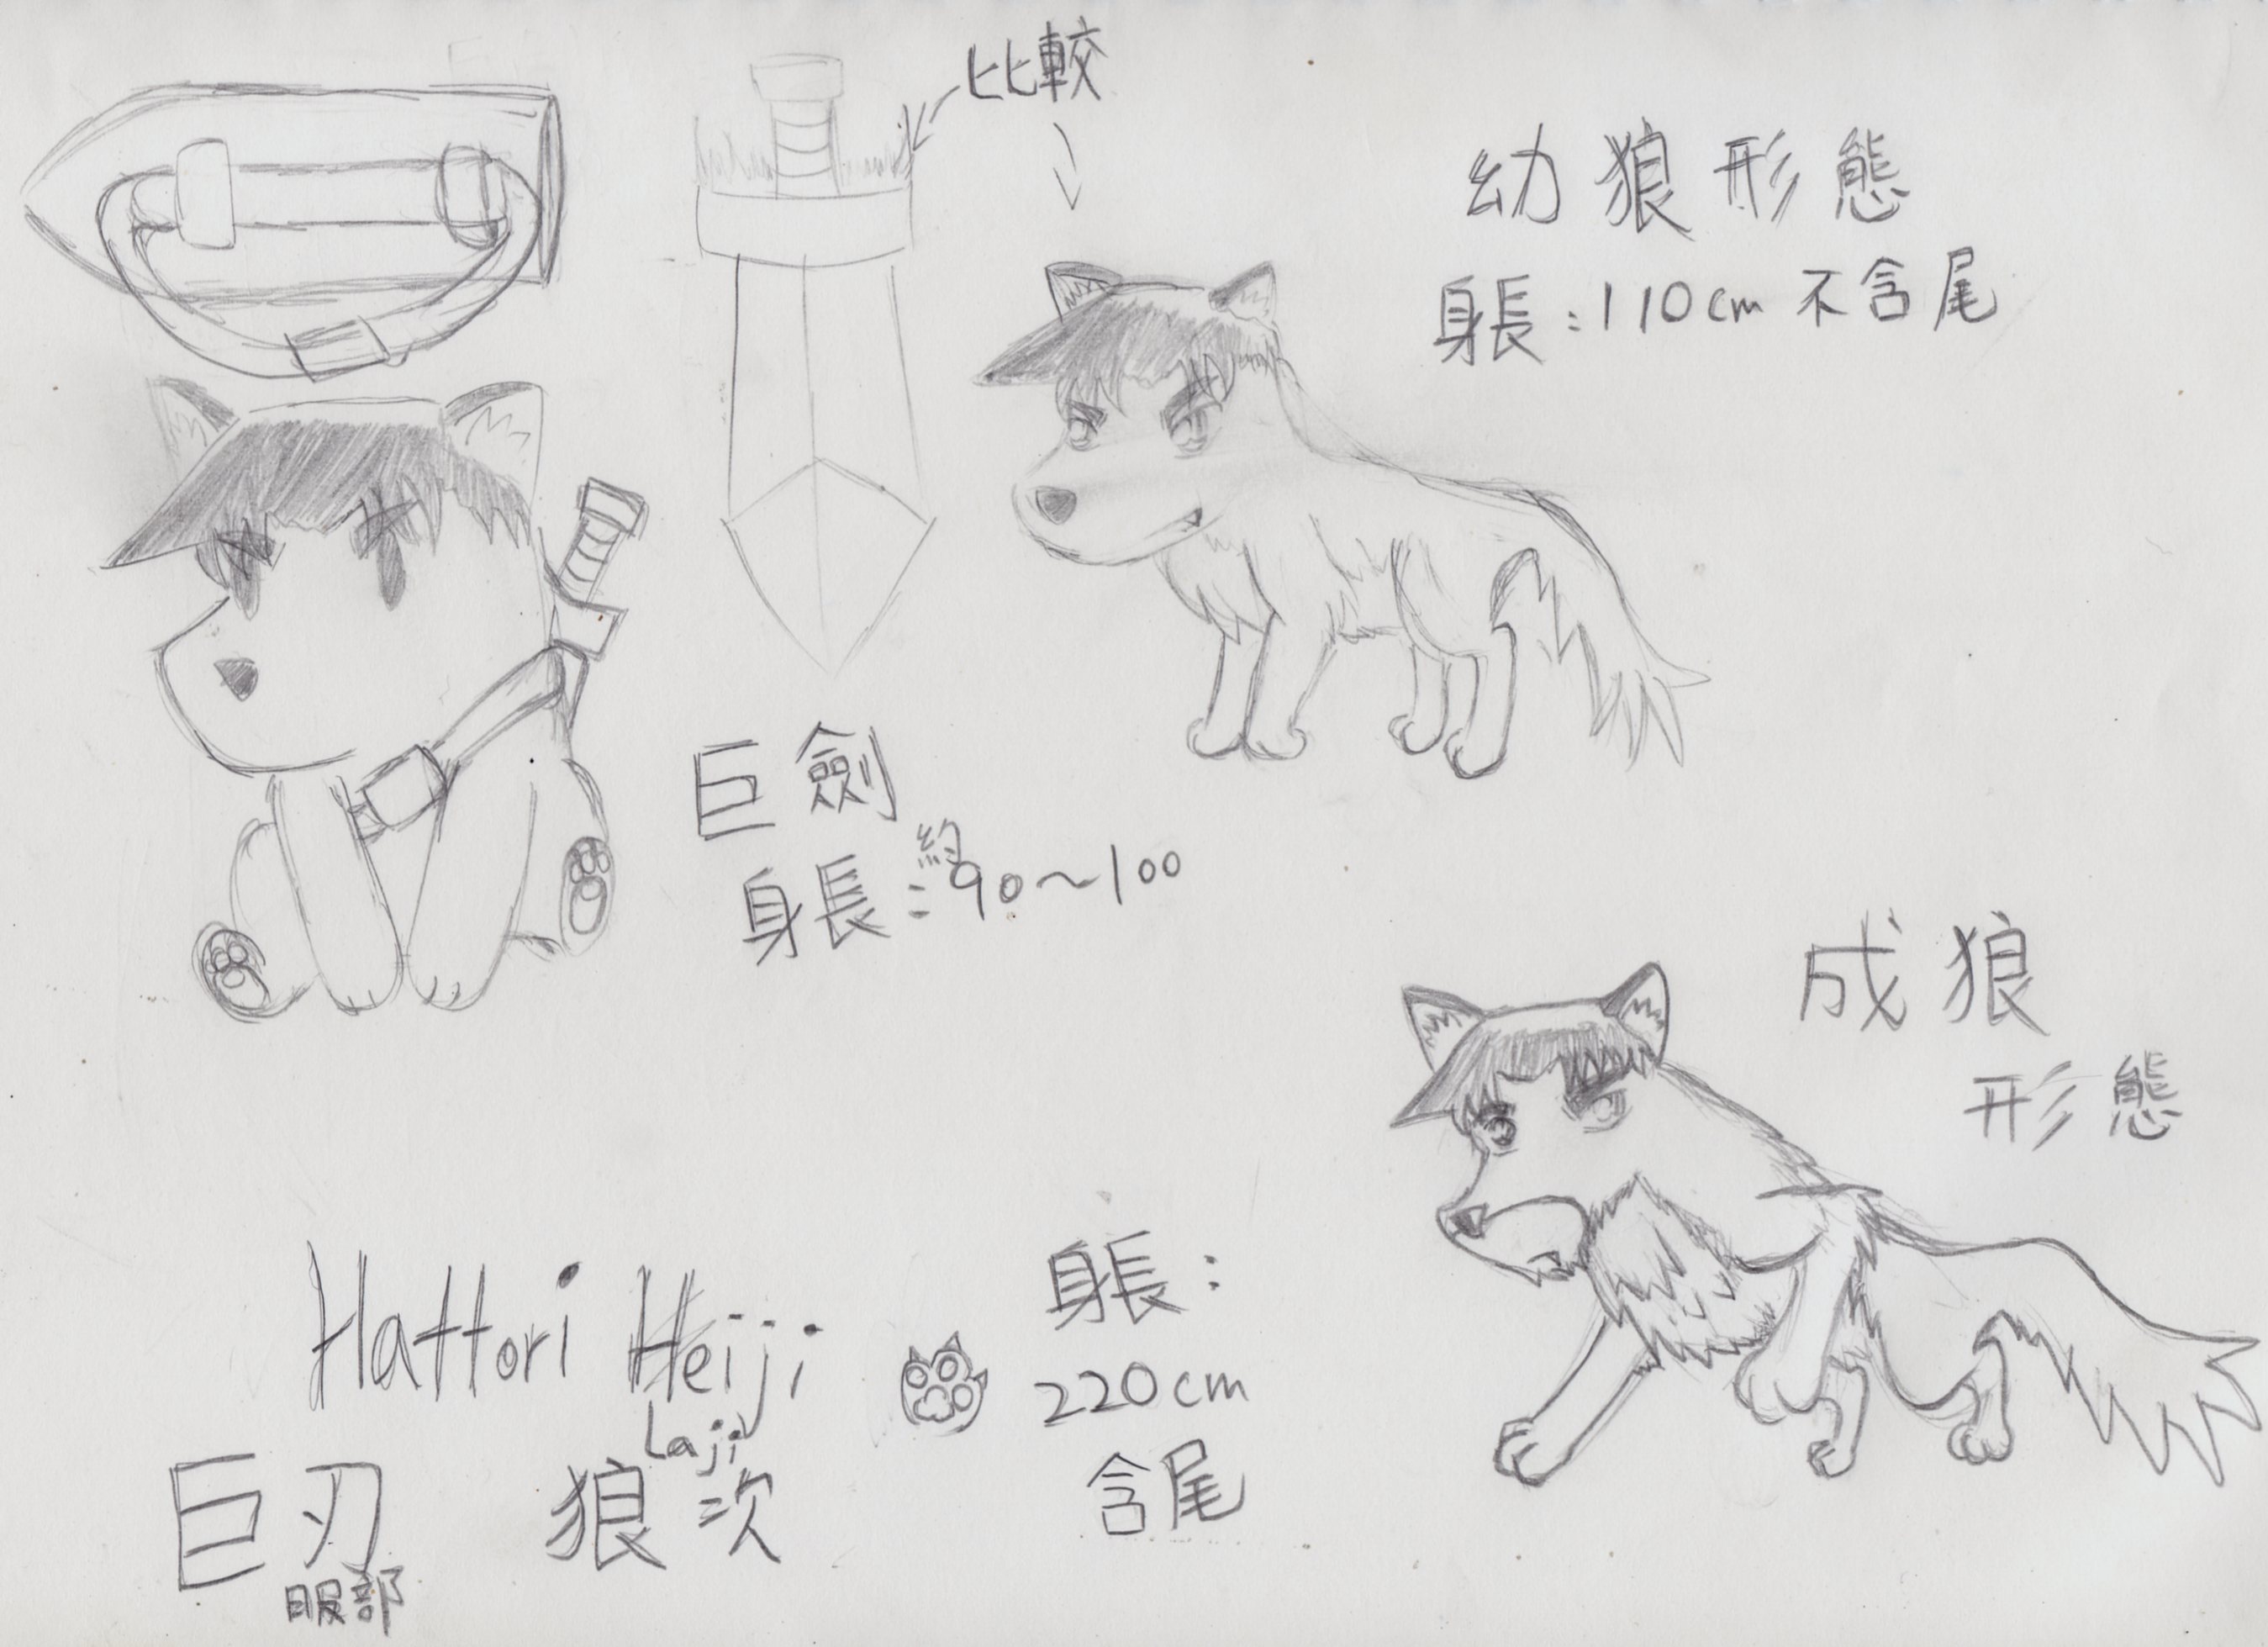 比較
幼狼形態
身長：110cm 不含尾
巨劍
身長：約90～100
成狼
形態
Hattori Heiji
Laji
巨刃 狼次
服部
身長：
220cm
含尾